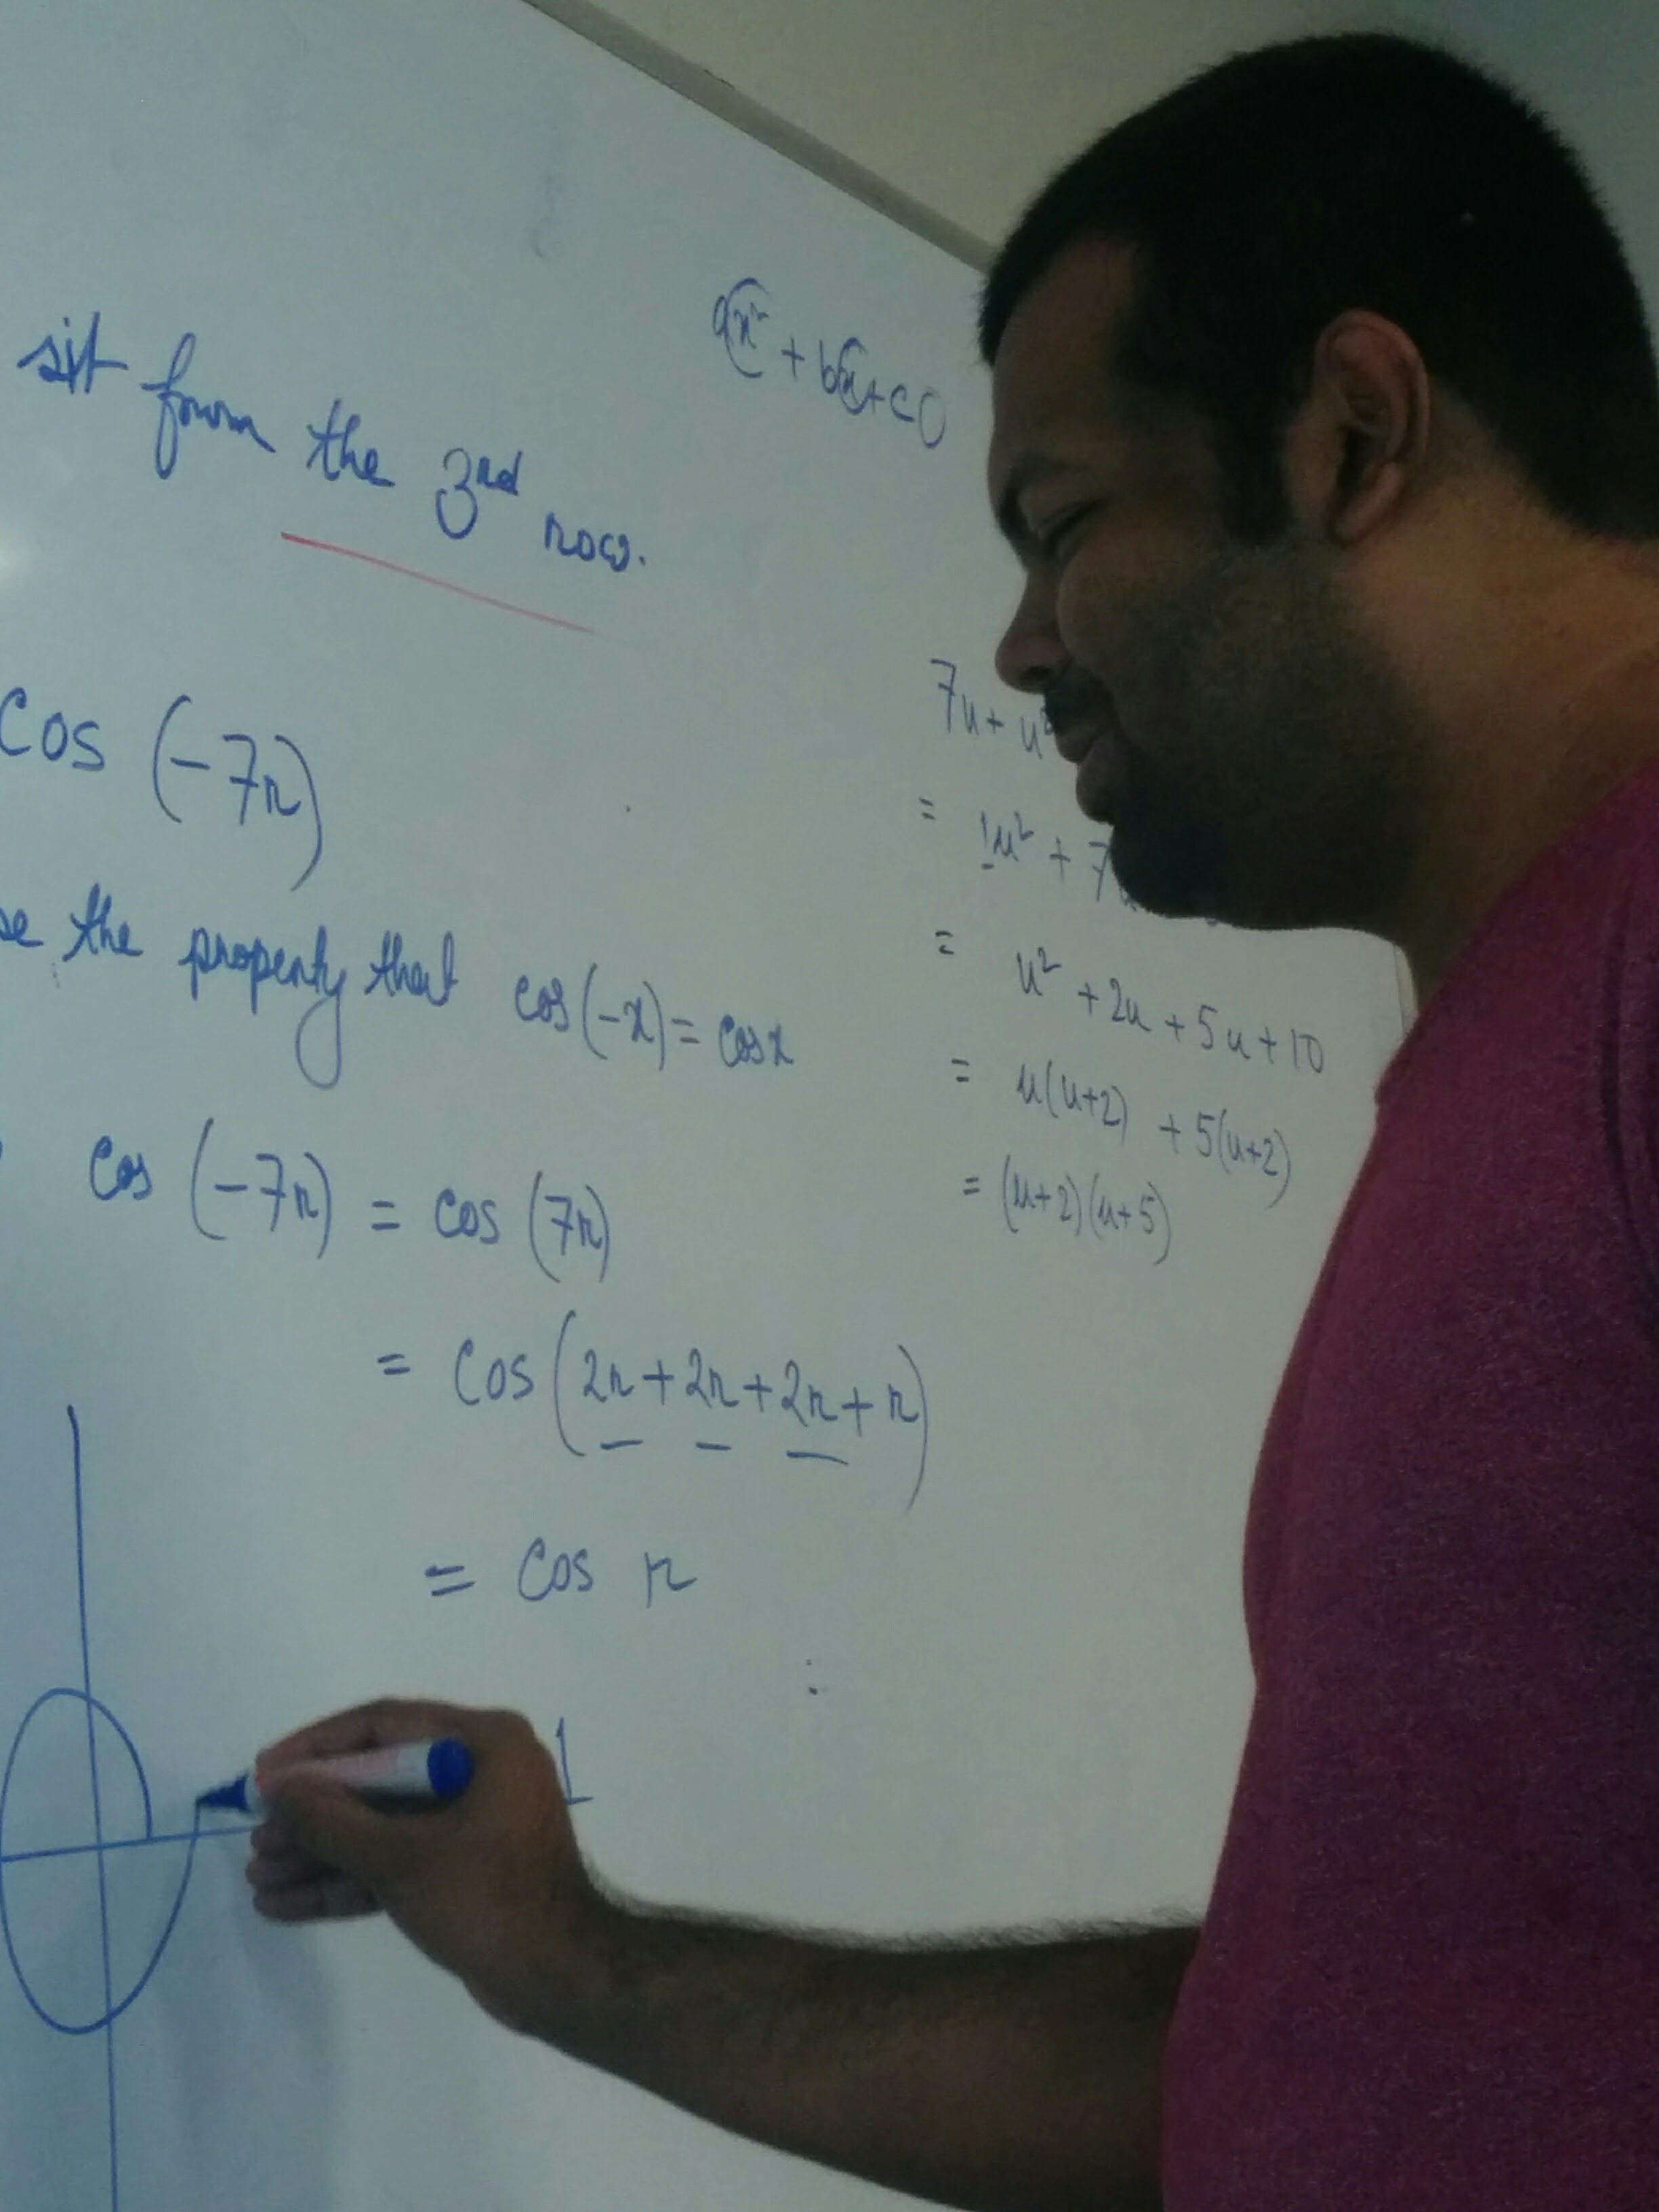 sit from the 3rd row.
ax² + bx + c 0
cos (-7π)
the property that cos(-x) = cos x
cos (-7π) = cos (7π)
= cos (2π + 2π + 2π + π)
= cos π
1
7u + u²
= 1u² + 7
= u² + 2u + 5u + 10
= u(u+2) + 5(u+2)
= (u+2)(u+5)